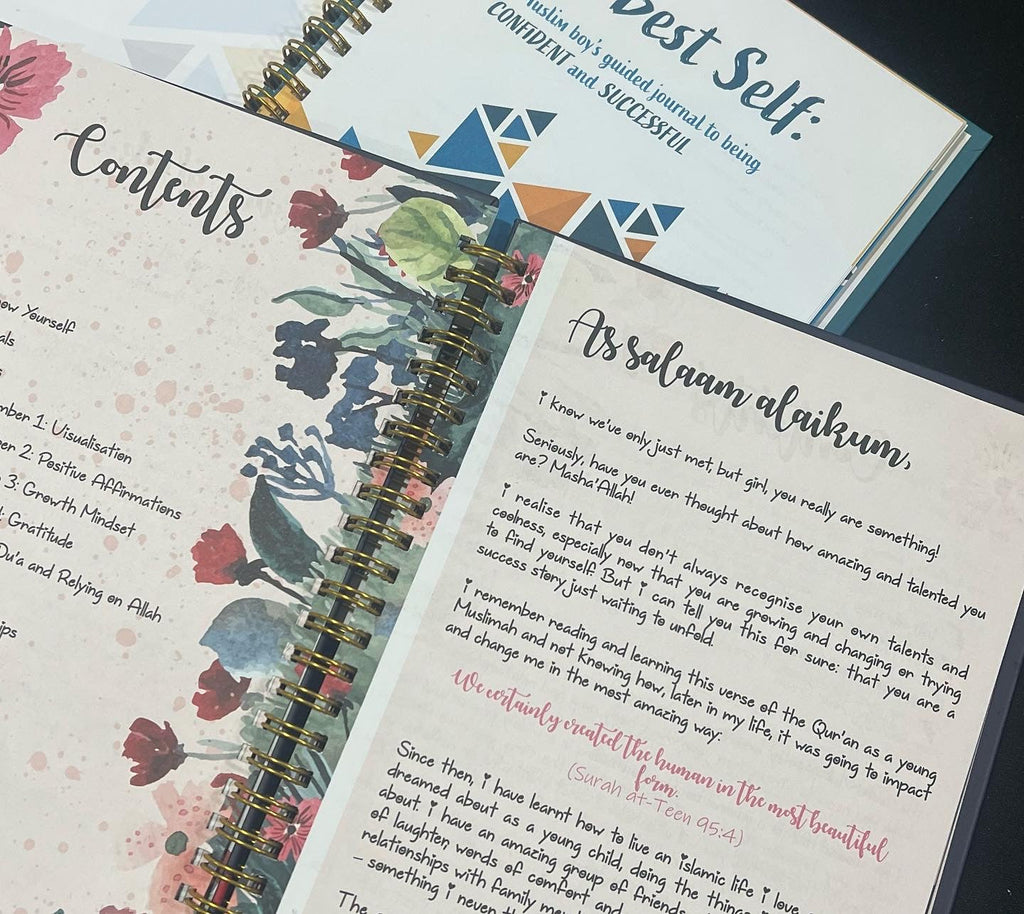 Best Self:
Muslim boy's guided journal to being
CONFIDENT and SUCCESSFUL
Contents
Yourself
1: Visualisation
2: Positive Affirmations
3: Growth Mindset
Gratitude
Du'a and Relying on Allah
As salaam alaikum,
i know we've only just met, but girl, you really are something!
Seriously, have you ever thought about how amazing and talented you
are? Masha'Allah!
i realise that you don't always recognise your own talents and
coolness, especially now that you are growing and changing on trying
to find yourself. But i can tell you this for sure: that you are a
success story just waiting to unfold.
i remember reading and learning this verse of the Qur'an as a young
Muslimah and not knowing how, later in my life, it was going to impact
and change me in the most amazing way:
We certainly created the human in the most beautiful
form.
(Surah at-Teen 95:4)
Since then, i have learnt how to live an islamic life i love
dreamed about as a young child, doing the things
about. i have an amazing group of friends
of laughter words of comfort and
relationships with family
– something i never
The